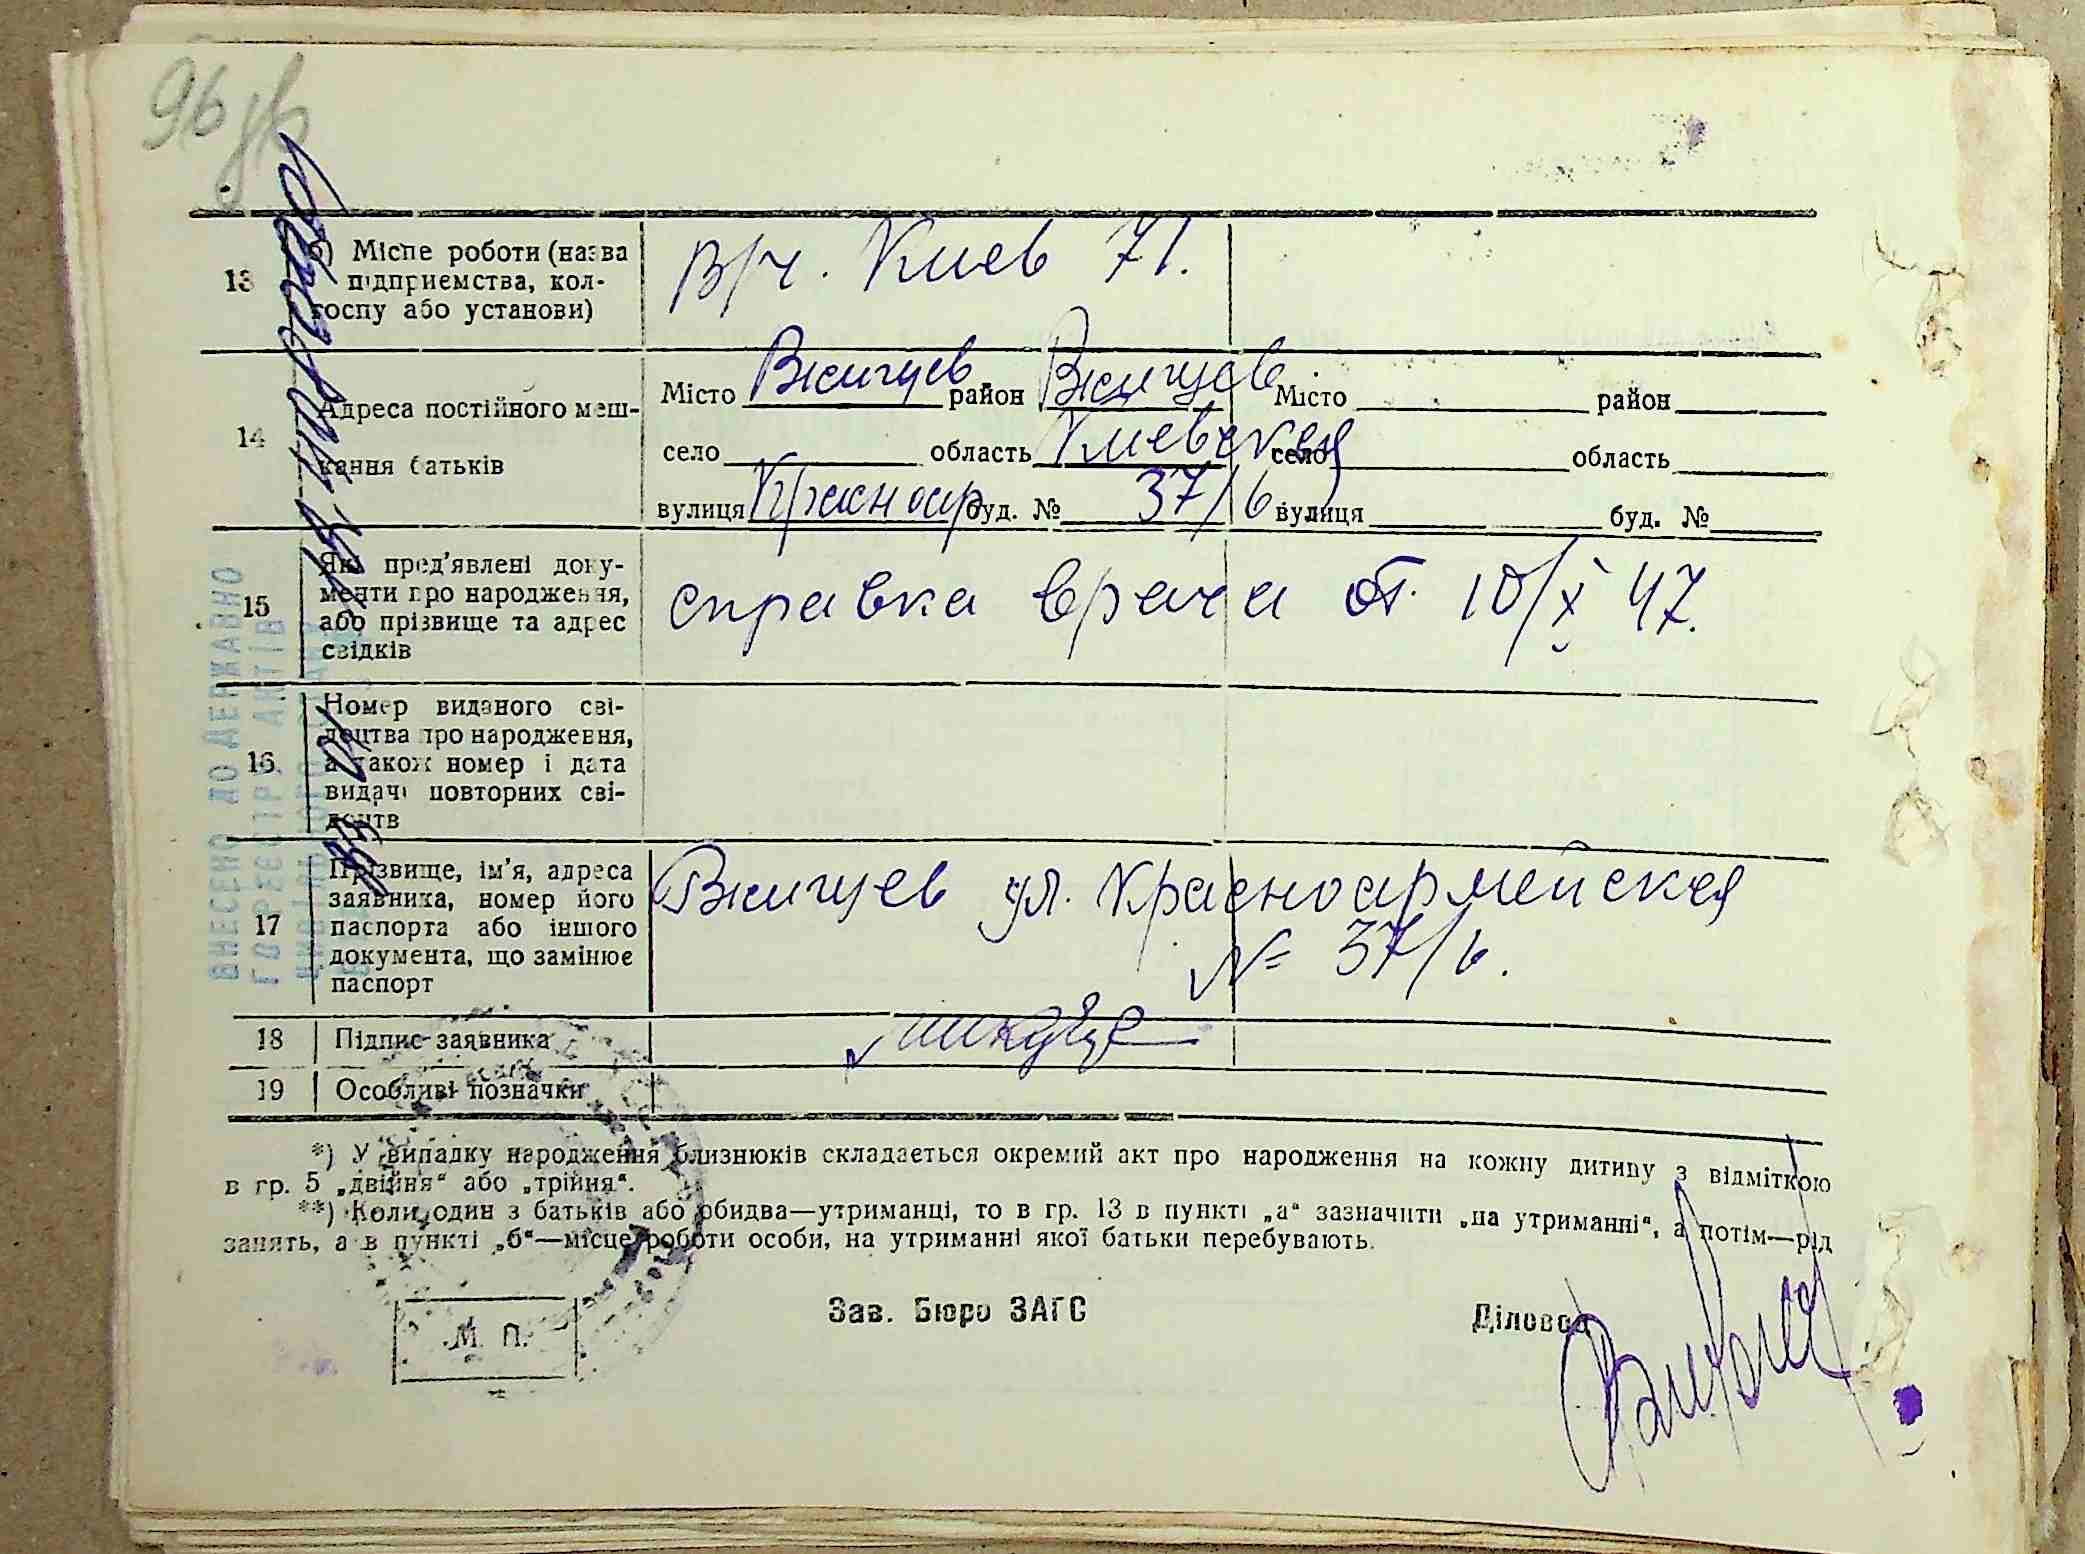 96
13
б) Місце роботи (назва
підприємства, кол-
госпу або установи)
В/ч. Киев 71.
14
Адреса постійного меш-
кання батьків
Місто Ржищев район Ржищев
село область Киевская
вулиця Красноар буд. № 37/6
Місто район
село область
вулиця буд. №
15
Які пред'явлені доку-
менти про народження,
або прізвище та адрес
свідків
справка врача от. 10/X 47.
16
Номер виданого сві-
доцтва про народження,
а також номер і дата
видачі повторних сві-
доцтв
17
Прізвище, ім'я, адреса
заявника, номер його
паспорта або іншого
документа, що замінює
паспорт
Ржищев ул. Красноармейская
№ 37/6.
18 Підпис заявника
19 Особливі позначки
*) У випадку народження близнюків складається окремий акт про народження на кожну дитину з відміткою
в гр. 5 „двійня“ або „трійня“.
**) Коли один з батьків або обидва—утриманці, то в гр. 13 в пункті „а“ зазначити „на утриманні“, а потім—рід
занять, а в пункті „б“—місце роботи особи, на утриманні якої батьки перебувають.
М. П.
Зав. Бюро ЗАГС
Діловод
ВНЕСЕНО ДО ДЕРЖАВНО
ГО РЕЄСТРУ АКТІВ